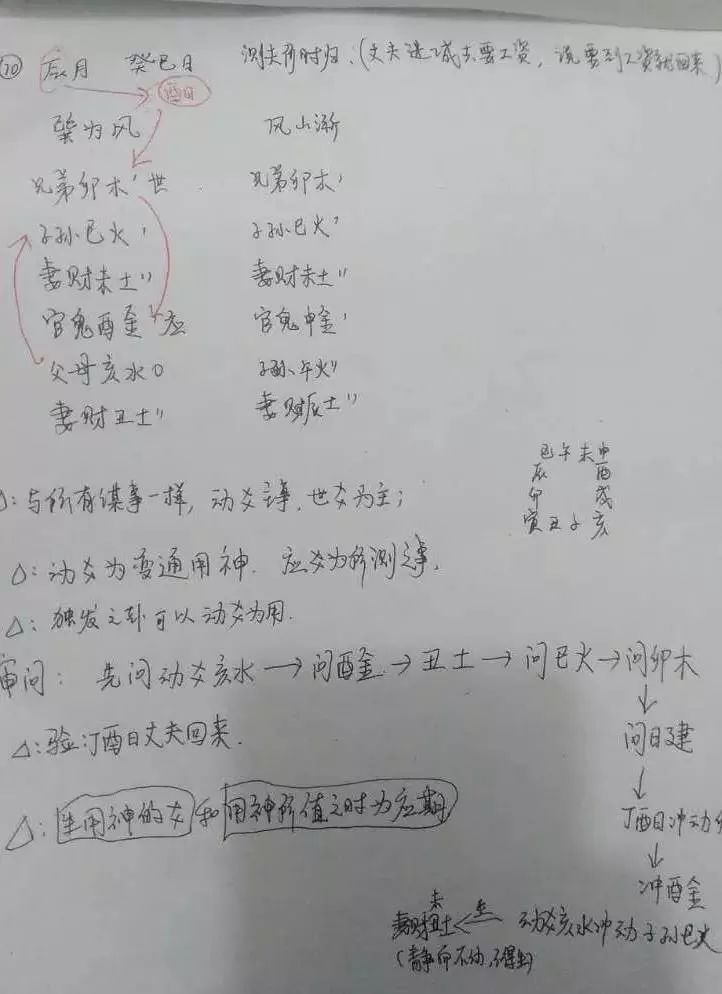 ⑩ 辰月 癸巳日 测夫何时归.(丈夫进城去要工资,说要到工资就回来)
酉日
巽为风 风山渐
兄弟卯木' 世 兄弟卯木'
子孙巳火' 子孙巳火'
妻财未土" 妻财未土"
官鬼酉金' 应 官鬼申金'
父母亥水○ 子孙午火"
妻财丑土" 妻财辰土"
巳午未申
辰 酉
卯 戌
寅丑子亥
△:与所有谋事一样,动爻主事,世爻为主;
△:动爻为变通用神.应爻为所测之事.
△:独发之卦可以动爻为用.
审问: 先问动爻亥水→问酉金→丑土→问巳火→问卯木
↓
问日建
△:验:丁酉日丈夫回来.
↓
丁酉日冲动
△:生用神的爻和用神所值之时为应期
↓
冲酉金
未
妻财丑土 ← 生 动爻亥水冲动子孙巳火
(静而不动,